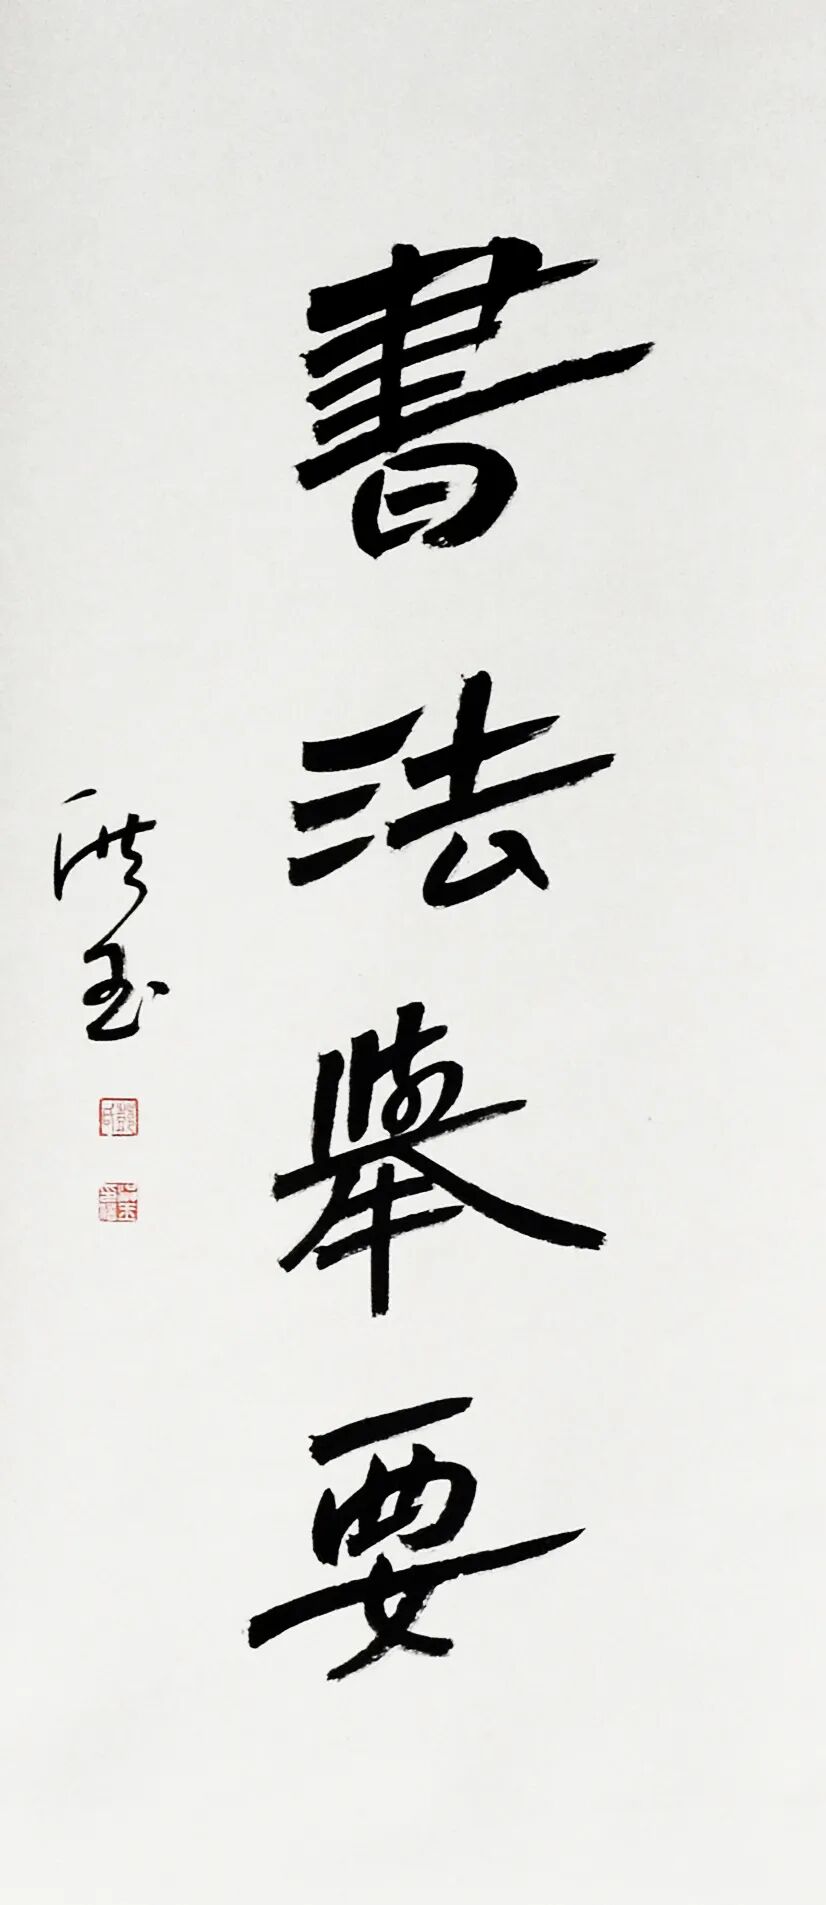 書法舉要
洪玉